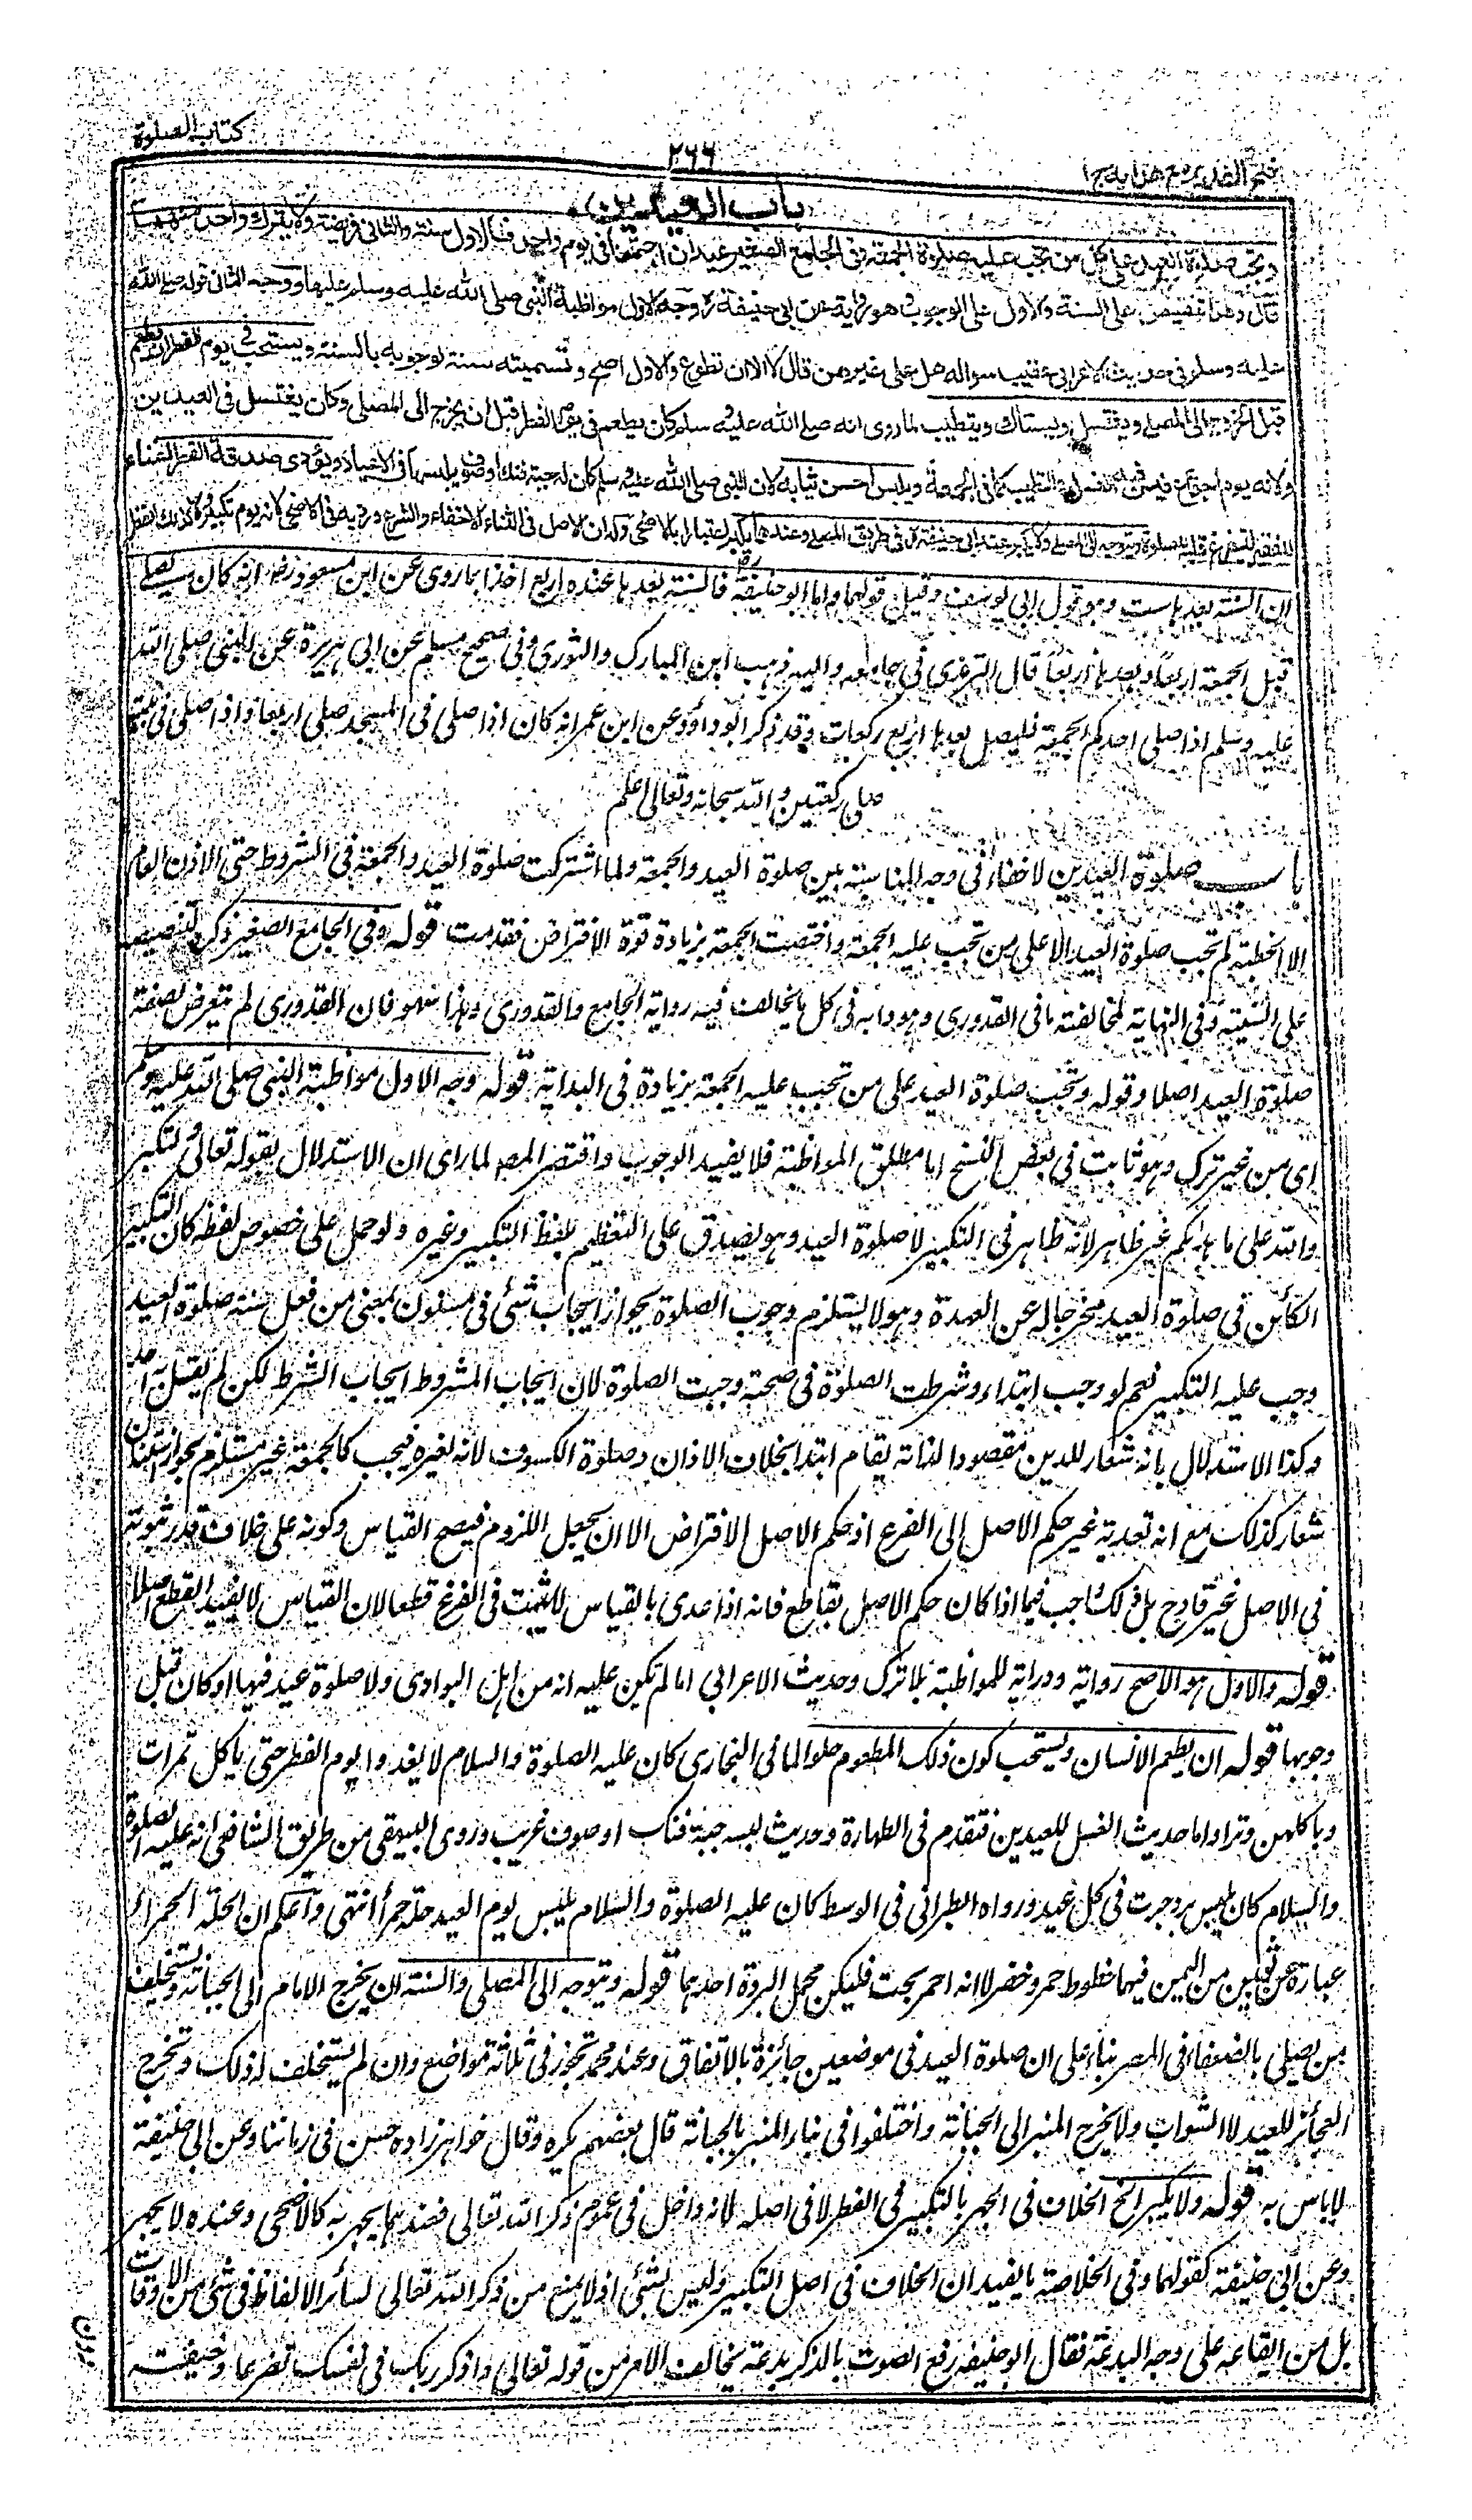 فتح القدير مع هدايه ج ا
٢٦٦
كتاب الصلوة
باب العيدين
وتجب صلوة العيد على كل من تجب عليه صلوة الجمعة وفى الجامع الصغير عيدان اجتمعا فى يوم واحد فالاول سنة والثانى فريضة ولا يترك واحد منهما
قال وهذا تنصيص على السنة والاول على الوجوب وهو رواية عن ابى حنيفة رح وجه الاول مواظبة النبى صلى الله عليه وسلم عليها ووجه الثانى قوله صلى الله
عليه وسلم فى حديث الاعرابى عقيب سواله هل على غيرهن قال لا الا ان تطوع والاول اصح وتسميته سنة لوجوبه بالسنة ويستحب فى يوم الفطر ان يطعم
قبل الخروج الى المصلى ويغتسل ويستاك ويتطيب لما روى انه صلى الله عليه وسلم كان يطعم فى يوم الفطر قبل ان يخرج الى المصلى وكان يغتسل فى العيدين
ولانه يوم اجتماع فيسن فيه الغسل والتطيب كما فى الجمعة ويلبس احسن ثيابه لان النبى صلى الله عليه وسلم كان له جبة فنك او صوف يلبسها فى الاعياد ويؤدى صدقة الفطر اغناء
للفقير ليتفرغ قلبه للصلوة ويتوجه الى المصلى ولا يكبر عند ابى حنيفة رح فى طريق المصلى وعندهما يكبر اعتبارا بالاضحى وله ان الاصل فى الثناء الاخفاء والشرع ورد به فى الاضحى لانه يوم تكبير ولا كذلك الفطر
ان السنة بعدها ست وهو قول ابى يوسف وقيل قولهما واما ابو حنيفة رح فالسنة بعدها عنده اربع اخذا بما روى عن ابن مسعود رض انه كان يصلى
قبل الجمعة اربعا وبعدها اربعا قال الترمذى فى جامعه واليه ذهب ابن المبارك والثورى وفى صحيح مسلم عن ابى هريرة عن النبى صلى الله
عليه وسلم اذا صلى احدكم الجمعة فليصل بعدها اربع ركعات وقد ذكر ابو داؤد عن ابن عمر انه كان اذا صلى فى المسجد صلى اربعا واذا صلى فى بيته
صلى ركعتين والله سبحانه وتعالى اعلم
باب صلوة العيدين لا خفاء فى وجه المناسبة بين صلوة العيد والجمعة ولما اشتركت صلوة العيد والجمعة فى الشروط حتى الاذن العام
الا الخطبة لم تجب صلوة العيد الا على من تجب عليه الجمعة واختصت الجمعة بزيادة قوة الافتراض فقدمت قوله وفى الجامع الصغير ذكره لتنصيصه
على السنية وفى النهاية لمخالفته ما فى القدورى وهو دابه فى كل ما يخالف فيه رواية الجامع والقدورى وهذا سهو فان القدورى لم يتعرض لصفة
صلوة العيد اصلا وقوله وتجب صلوة العيد على من تجب عليه الجمعة بزيادة فى البداية قوله وجه الاول مواظبة النبى صلى الله عليه وسلم
اى من غير ترك وهو ثابت فى بعض النسخ اما مطلق المواظبة فلا يفيد الوجوب واقتصر المص لما راى ان الاستدلال بقوله تعالى ولتكبروا
الله على ما هداكم غير ظاهر لانه ظاهر فى التكبير لا صلوة العيد وهو يصدق على التعظيم بلفظ التكبير وغيره ولو حمل على خصوص لفظه كان التكبير
الكائن فى صلوة العيد مخرجا له عن العهدة وهو لا يستلزم وجوب الصلوة لجواز ايجاب شئ فى مسنون بمعنى من فعل سنة صلوة العيد
وجب عليه التكبير نعم لو وجب ابتداء وشرطت الصلوة فى صحته وجبت الصلوة لان ايجاب المشروط ايجاب الشرط لكن لم يقل به احد
وكذا الاستدلال بانه شعار للدين مقصودا لذاته يقام ابتدا بخلاف الاذان وصلوة الكسوف لانه لغيره فيجب كالجمعة غير مستلزم لجواز استنان
شعار كذلك مع انه تعدية غير حكم الاصل الى الفرع اذ حكم الاصل الافتراض الا ان يجعل اللزوم فيصح القياس وكونه على خلاف قدر ثبوته
فى الاصل غير قادح بل ذلك واجب فيما اذا كان حكم الاصل بقاطع فانه اذا عدى بالقياس لا يثبت فى الفرع قطعا لان القياس لا يفيد القطع اصلا
قوله والاول هو الاصح رواية ودراية للمواظبة بلا ترك وحديث الاعرابى اما لم يكن عليه انه من اهل البوادى ولا صلوة عيد فيها او كان قبل
وجوبها قوله ان يطعم الانسان ويستحب كون ذلك المطعوم حلوا لما فى البخارى كان عليه الصلوة والسلام لا يغدو يوم الفطر حتى ياكل تمرات
وياكلهن وترا واما حديث الغسل للعيدين فتقدم فى الطهارة وحديث لبسه جبة فنك او صوف غريب وروى البيهقى من طريق الشافعى انه عليه الصلوة
والسلام كان يلبس برد حبرة فى كل عيد ورواه الطبرانى فى الاوسط كان عليه الصلوة والسلام يلبس يوم العيد حلة حمراء انتهى واعلم ان الحلة الحمراء
عبارة عن ثوبين من اليمن فيهما خطوط حمر وخضر لا انه احمر بحت فليكن محمل البردة احدهما قوله ويتوجه الى المصلى والسنة ان يخرج الامام الى الجبانة ويستخلف
من يصلى بالضعفاء فى المصر بناء على ان صلوة العيد فى موضعين جائزة بالاتفاق وعند محمد تجوز فى ثلاثة مواضع وان لم يستخلف له ذلك وتخرج
العجائز للعيد لا الشواب ولا يخرج المنبر الى الجبانة واختلفوا فى بناء المنبر بالجبانة قال بعضهم يكره وقال خواهر زاده حسن فى زماننا وعن ابى حنيفة
لا باس به قوله ولا يكبر الخ الخلاف فى الجهر بالتكبير فى الفطر لا فى اصله لانه داخل فى عموم ذكر الله تعالى فعندهما يجهر به كالاضحى وعنده لا يجهر
وعن ابى حنيفة كقولهما وفى الخلاصة ما يفيد ان الخلاف فى اصل التكبير وليس بشئ اذ لا يمنع من ذكر الله تعالى لسائر الالفاظ فى شئ من الاوقات
بل من ايقاعه على وجه البدعة فقال ابو حنيفة رفع الصوت بالذكر بدعة يخالف الامر من قوله تعالى واذكر ربك فى نفسك تضرعا وخيفة